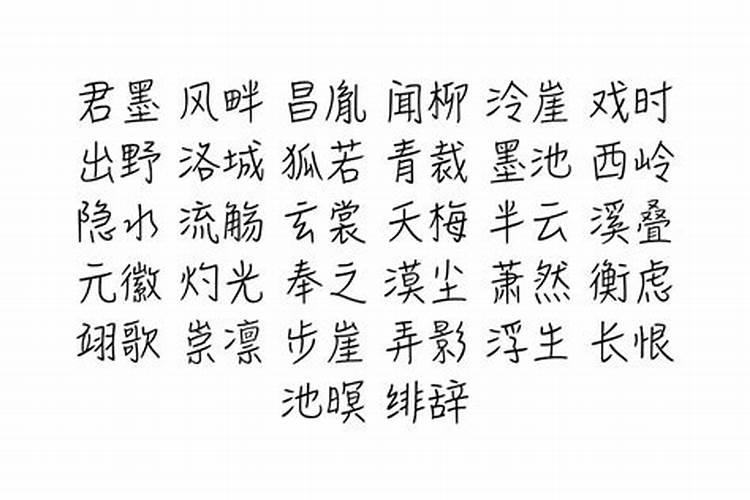 君墨 风畔 昌胤 闻柳 泠崖 戏时
出野 洛城 狐若 青裁 墨池 西岭
隐水 流觞 玄裳 夭梅 半云 溪叠
元徽 灼光 奉之 漠尘 萧然 衡虑
翊歌 崇凛 步崖 弄影 浮生 长恨
池暝 绯辞